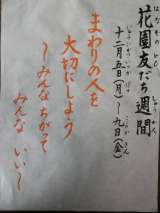 花園友だち週間
十二月五日(月)～九日(金)
まわりの人を
大切にしよう
～みんなちがって
みんな いい～